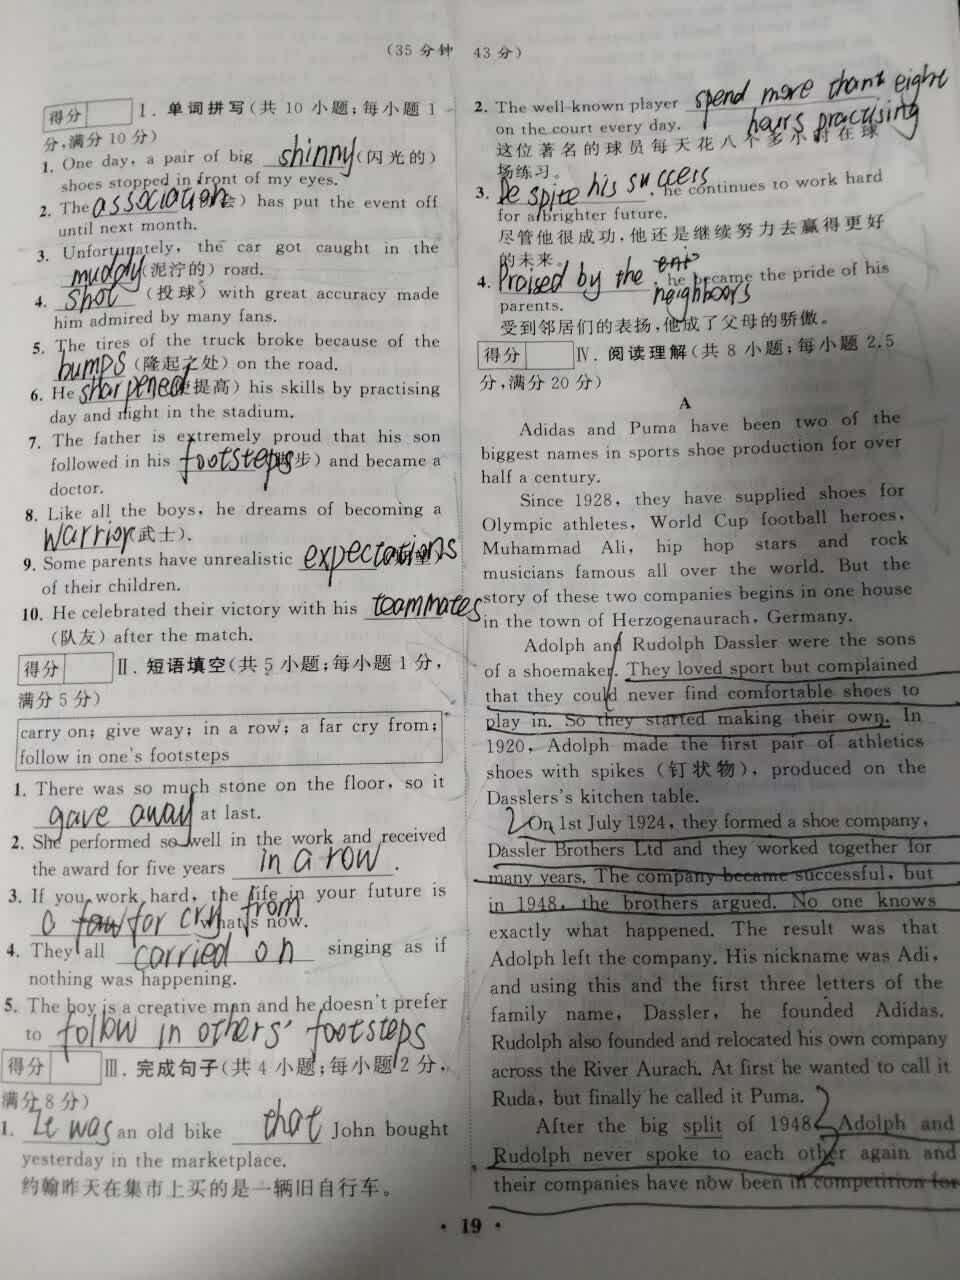 (35分钟 43分)
得分 Ⅰ. 单词拼写(共 10 小题;每小题 1
分,满分 10 分)
1. One day, a pair of big shinny (闪光的)
shoes stopped in front of my eyes.
2. The association 会) has put the event off
until next month.
3. Unfortunately, the car got caught in the
muddy (泥泞的) road.
4. shot (投球) with great accuracy made
him admired by many fans.
5. The tires of the truck broke because of the
bumps (隆起之处) on the road.
6. He sharpened 使提高) his skills by practising
day and night in the stadium.
7. The father is extremely proud that his son
followed in his footsteps 步) and became a
doctor.
8. Like all the boys, he dreams of becoming a
warrior (武士).
9. Some parents have unrealistic expectations
of their children.
10. He celebrated their victory with his teammates
(队友) after the match.
得分 Ⅱ. 短语填空(共 5 小题;每小题 1 分,
满分 5 分)
carry on; give way; in a row; a far cry from;
follow in one's footsteps
1. There was so much stone on the floor, so it
gave away at last.
2. She performed so well in the work and received
the award for five years in a row .
3. If you work hard, the life in your future is
a far cry from what is now.
4. They all carried on singing as if
nothing was happening.
5. The boy is a creative man and he doesn't prefer
to follow in others' footsteps
得分 Ⅲ. 完成句子(共 4 小题;每小题 2 分,
满分 8 分)
1. It was an old bike that John bought
yesterday in the marketplace.
约翰昨天在集市上买的是一辆旧自行车。
2. The well-known player spend more than eight
hours practising
on the court every day.
这位著名的球员每天花八个多小时在球
场练习。
3. Despite his success , he continues to work hard
for a brighter future.
尽管他很成功,他还是继续努力去赢得更好
的未来。
4. Praised by the neighboors , he became the pride of his
parents.
受到邻居们的表扬,他成了父母的骄傲。
得分 Ⅳ. 阅读理解(共 8 小题;每小题 2.5
分,满分 20 分)
A
Adidas and Puma have been two of the
biggest names in sports shoe production for over
half a century.
Since 1928, they have supplied shoes for
Olympic athletes, World Cup football heroes,
Muhammad Ali, hip hop stars and rock
musicians famous all over the world. But the
story of these two companies begins in one house
in the town of Herzogenaurach, Germany.
Adolph and Rudolph Dassler were the sons
of a shoemaker. They loved sport but complained
that they could never find comfortable shoes to
play in. So they started making their own. In
1920, Adolph made the first pair of athletics
shoes with spikes (钉状物), produced on the
Dasslers's kitchen table.
On 1st July 1924, they formed a shoe company,
Dassler Brothers Ltd and they worked together for
many years. The company became successful, but
in 1948, the brothers argued. No one knows
exactly what happened. The result was that
Adolph left the company. His nickname was Adi,
and using this and the first three letters of the
family name, Dassler, he founded Adidas.
Rudolph also founded and relocated his own company
across the River Aurach. At first he wanted to call it
Ruda, but finally he called it Puma.
After the big split of 1948, Adolph and
Rudolph never spoke to each other again and
their companies have now been in competition for
• 19 •